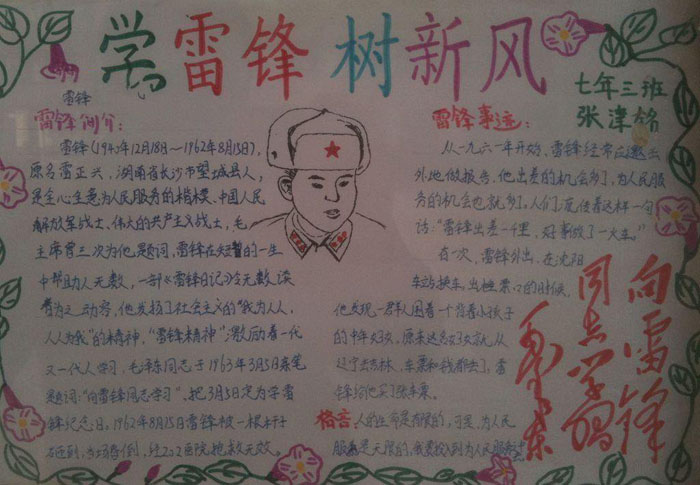 学雷锋 树新风
七年三班
张津铭
雷锋
雷锋简介：
雷锋（1940年12月18日～1962年8月15日），
原名雷正兴，湖南省长沙市望城县人，
是全心全意为人民服务的楷模、中国人民
解放军战士、伟大的共产主义战士，毛
主席曾三次为他题词，雷锋在短暂的一生
中帮助人无数，一部《雷锋日记》令无数读
者为之动容，他发扬了社会主义的“我为人人，
人人为我”的精神，“雷锋精神”激励着一代
又一代人学习，毛泽东同志于1963年3月5日亲笔
题词：“向雷锋同志学习”、把3月5日定为学雷
锋纪念日，1962年8月15日雷锋被一根杆子
砸到，当场昏倒，经202医院抢救无效。
雷锋事迹：
从一九六一年开始，雷锋经常应邀去
外地做报告，他出差的机会多了，为人民服
务的机会也就多了，人们流传着这样一句
话：“雷锋出差一千里，好事做了一火车。”
有一次，雷锋外出，在沈阳
车站换车，出检票口的时候，
他发现一群人围着一个背着小孩子
的中年妇女，原来这妇女从
辽宁去吉林，车票和钱都丢了，雷
锋给他买了张车票。
格言 人的生命是有限的，可是，为人民
服务是无限的，我要投入到为人民服务中去
向雷锋
同志学习
毛泽东